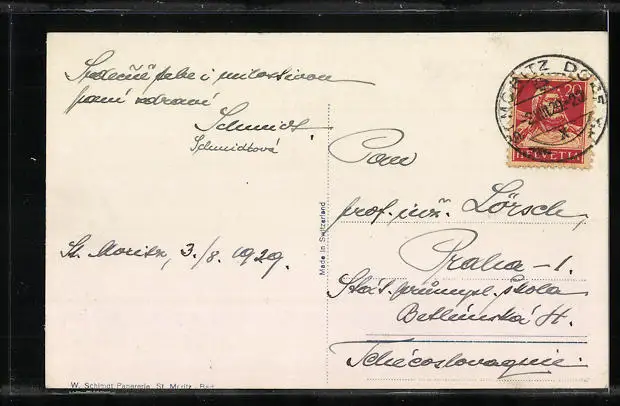 Srdečně Tebe i milostivou
paní zdraví
Schmidt.
Schmidtová
St. Moritz, 3./8. 1929.
W. Schmidt Papeterie, St. Moritz - Bad
Made in Switzerland
ST. MORITZ DORF
VIII.29
20
HELVETIA
Pan
prof. inž. Lörsch,
Praha - 1.
Stát. průmysl. škola
Betlémská Ul.
Tchécoslovaquie.